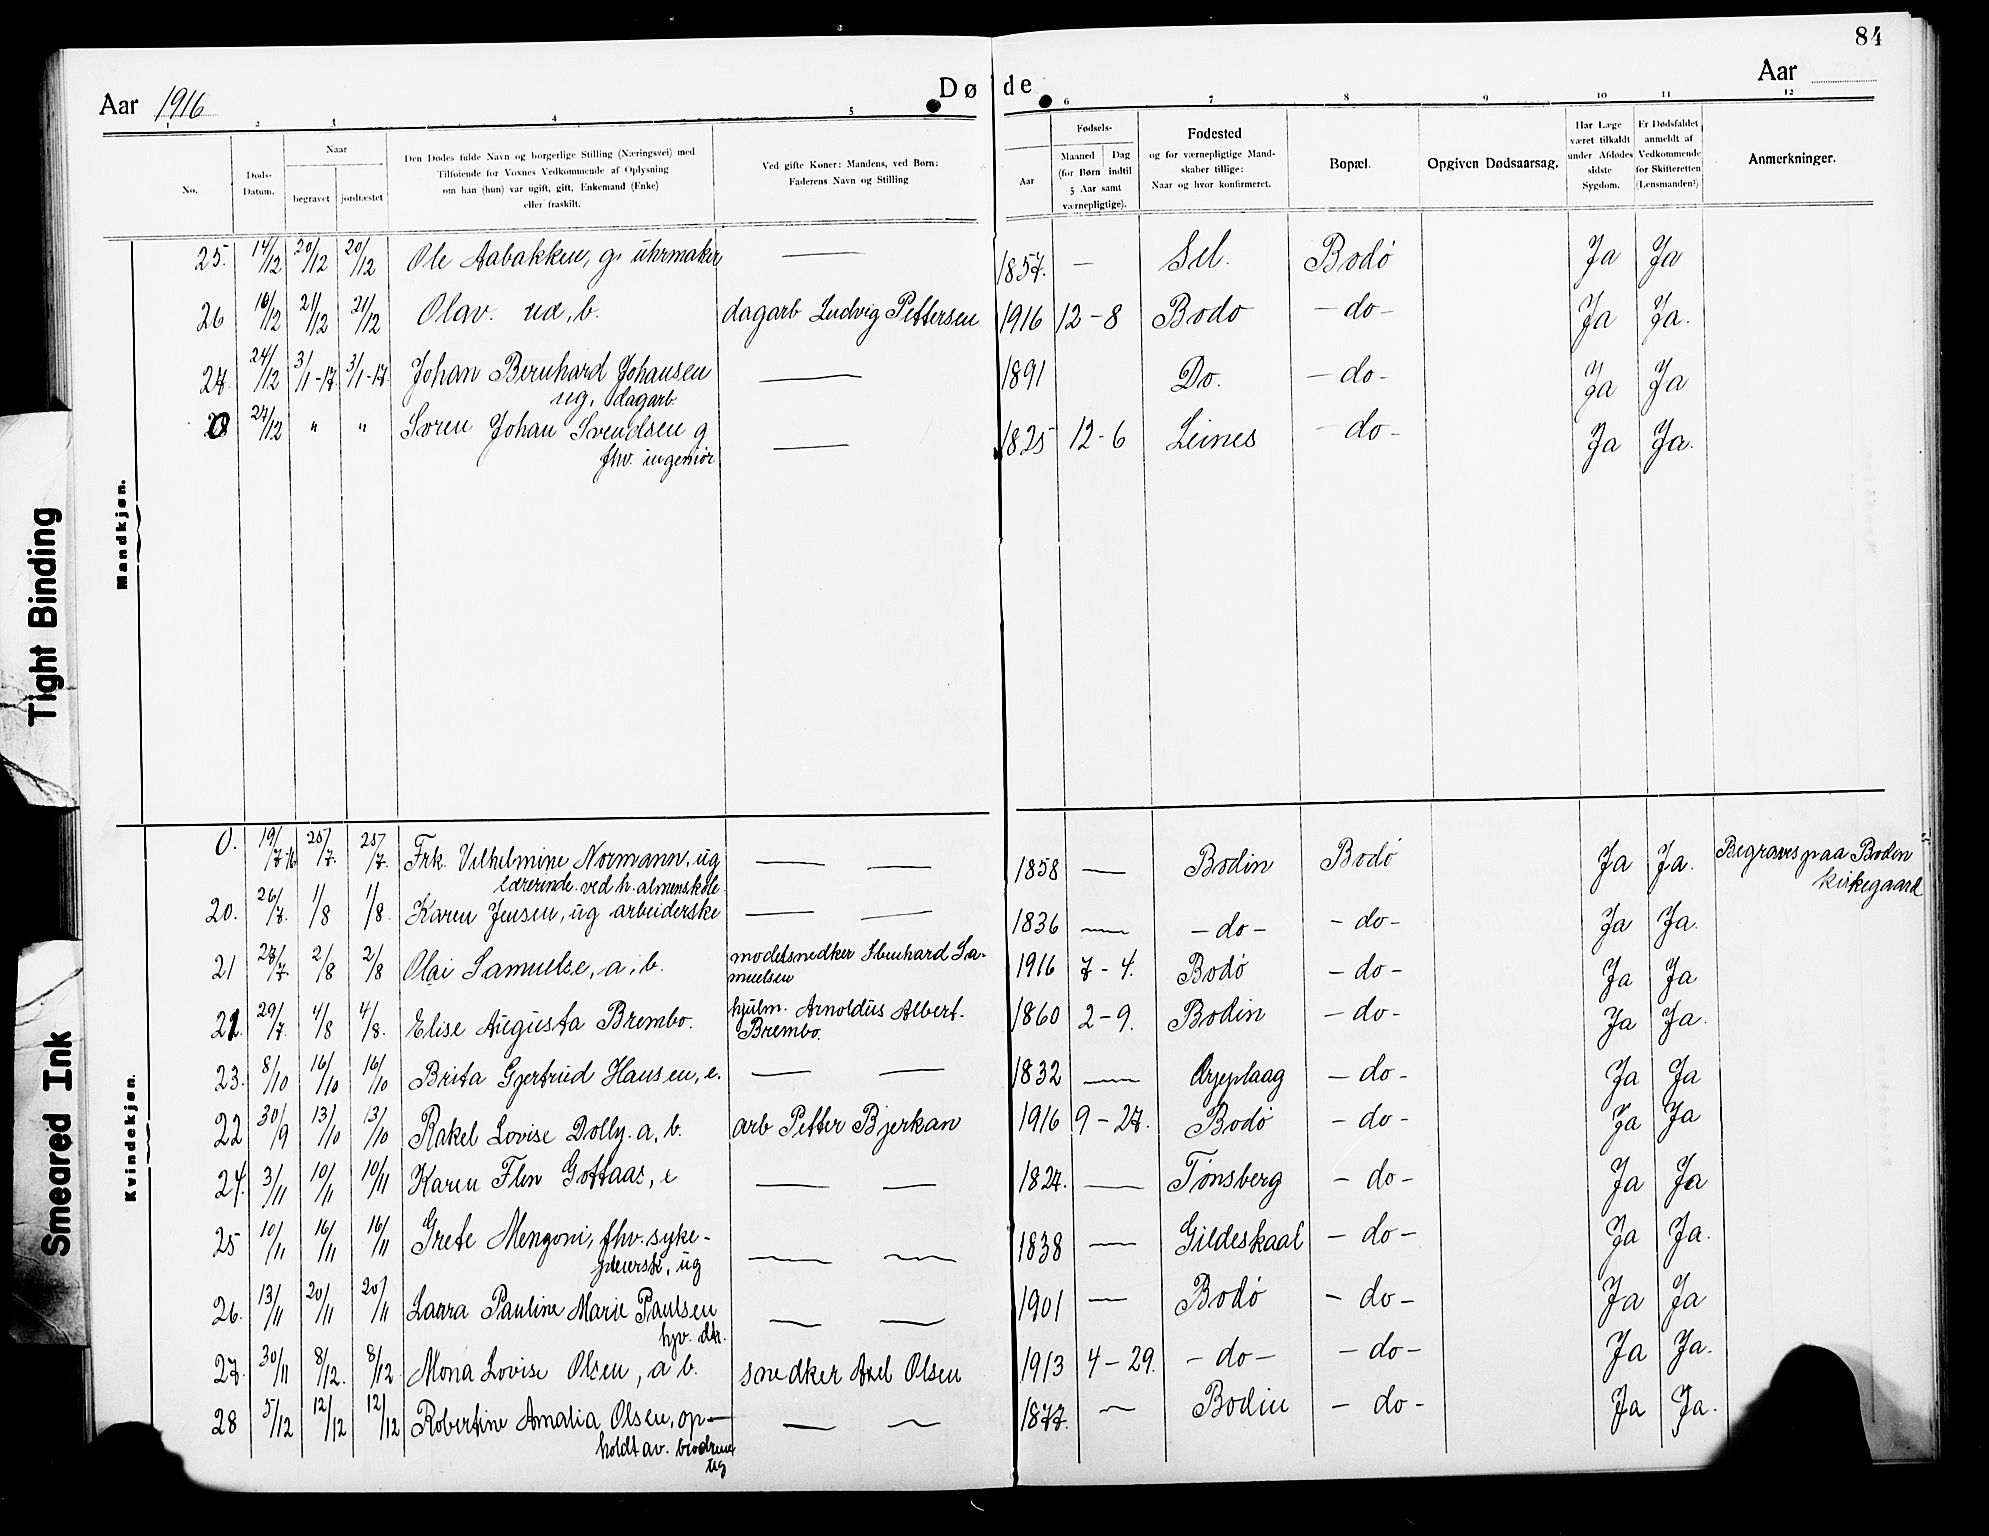 84
Aar 1916
Døde
Aar
1 2 3 4 5 6 7 8 9 10 11 12
No.
Døds-
Datum.
Naar
begravet jordfæstet
Den Dødes fulde Navn og borgerlige Stilling (Næringsvei) med
Tilføiende for Voxnes Vedkommende af Oplysning
om han (hun) var ugift, gift, Enkemand (Enke)
eller fraskilt.
Ved gifte Koner: Mandens, ved Børn:
Faderens Navn og Stilling
Aar
Fødsels-
Maaned Dag
(for Børn indtil
5 Aar samt
værnepligtige).
Fødested
og for værnepligtige Mand-
skaber tillige:
Naar og hvor konfirmeret.
Bopæl.
Opgiven Dødsaarsag.
Har Læge
været tilkaldt
under Afdødes
sidste
Sygdom.
Er Dødsfaldet
anmeldt af
Vedkommende
for Skifteretten
(Lensmanden?)
Anmerkninger.
Mandkjøn.
25. 14/12 20/12 20/12 Ole Aabakken, g. uhrmaker — 1857. — Sel. Bodø Ja Ja
26 16/12 21/12 21/12 Olav. ua, b. dagarb Ludvig Pettersen 1916 12-8 Bodø -do- Ja Ja.
27. 24/12 3/1-17 3/1-17 Johan Bernhard Johansen — 1891 Do. -do- Ja Ja
ug, dagarb.
28 27/12 " " Søren Johan Svendsen g — 1825 12-6 Leines -do- Ja Ja.
fhv. ingeniør
Kvindekjøn.
0. 19/7-16 25/7. 25/7. Frk. Vilhelmine Normann, ug — — 1858 — Bodin Bodø Ja Ja. Begraves paa Bodin
lærerinde ved h. almenskole. kirkegaard
20. 26/7. 1/8 1/8. Karen Jensen, ug arbeiderske — — 1836 — -do- -do- Ja Ja.
21 27/7 2/8 2/8 Olai Samuelse, a, b. modelsnedker Sa- 1916 7-4. Bodø -do- Ja Ja
muelsen
21. 29/7 4/8 4/8. Elise Augusta Brembo. hjulm. Arnoldus Albert. 1860 2-9. Bodin -do- Ja Ja.
Brembo.
23. 8/10 16/10 16/10 Brita Gjertrud Hansen, e. — — 1832 — Arjeplaag -do- Ja Ja
22 30/9 13/10 13/10 Rakel Lovise Dolly. a, b. arb Petter Bjerkan 1916 9-27. Bodø -do- Ja Ja
24. 3/11 10/11 10/11 Karen Gottaas, e — — 1827. — Tønsberg -do- Ja Ja
25 10/11 16/11 16/11 Grete Mengoni, fhv. syke- — — 1838 — Gildeskaal -do- Ja Ja.
pleiersk, ug
26. 13/11 20/11 20/11 Laura Pauline Marie Paulsen — — 1901 — Bodø -do- Ja Ja
hjv. dtr.
27. 30/11 8/12. 8/12. Mona Lovise Olsen, a b. snedker Axel Olsen 1913 4-29. -do- -do- Ja Ja.
28 5/12 12/12 12/12 Robertine Amalia Olsen, op- — — 1877. — Bodin -do- Ja Ja.
holdt av. brodrene
ug
Tight Binding
Smeared Ink